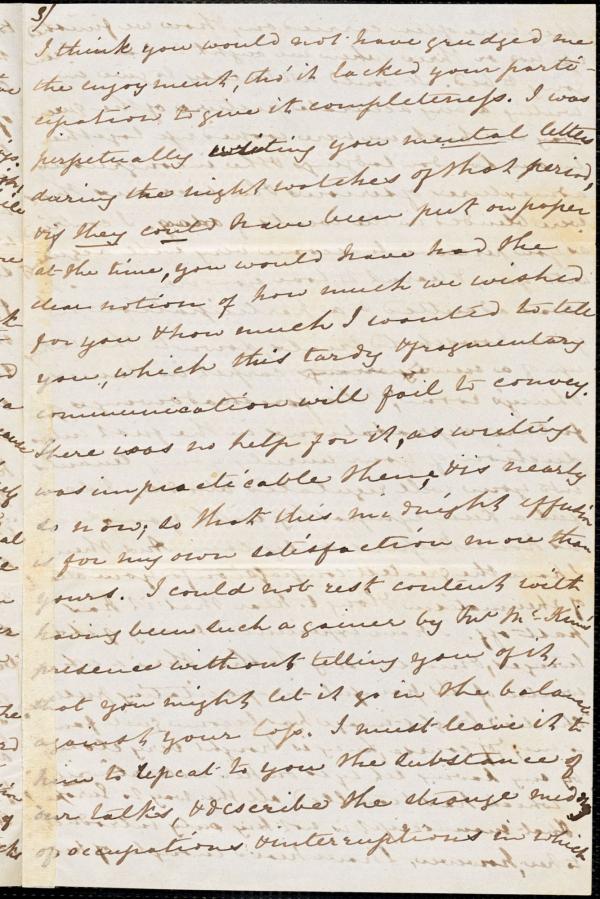 3/
I think you would not have grudged me
the enjoyment, tho' it lacked your parti-
cipation to give it completeness. I was
perpetually writing you mental letters
during the night watches of that period,
& if they could have been put on paper
at the time, you would have had the
clear notion of how much we wished
for you & how much I wanted to tell
you, which this tardy & fragmentary
communication will fail to convey.
There was no help for it, as writing
was impracticable then, & is nearly
so now; so that this midnight effusion
is for my own satisfaction more than
yours. I could not rest content with
having been such a gainer by Mr McKim's
presence without telling you of it,
that you might let it go in the balance
against your loss. I must leave it to
him to repeat to you the substance of
our talks, & describe the strange
of occupations & interruptions in which